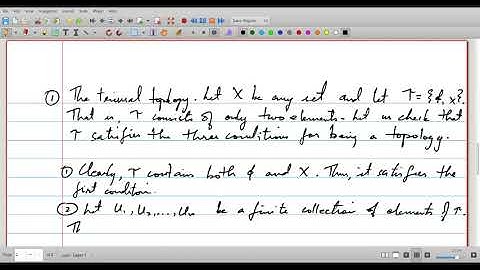 ① The trivial topology. Let X be any set and let τ = {ϕ, X}.
That is, τ consists of only two elements. Let us check that
τ satisfies the three conditions for being a topology.
① Clearly, τ contains both ϕ and X. Thus, it satisfies the
first condition.
② Let U₁, U₂, ..., Uₙ be a finite collection of elements of τ.
Th